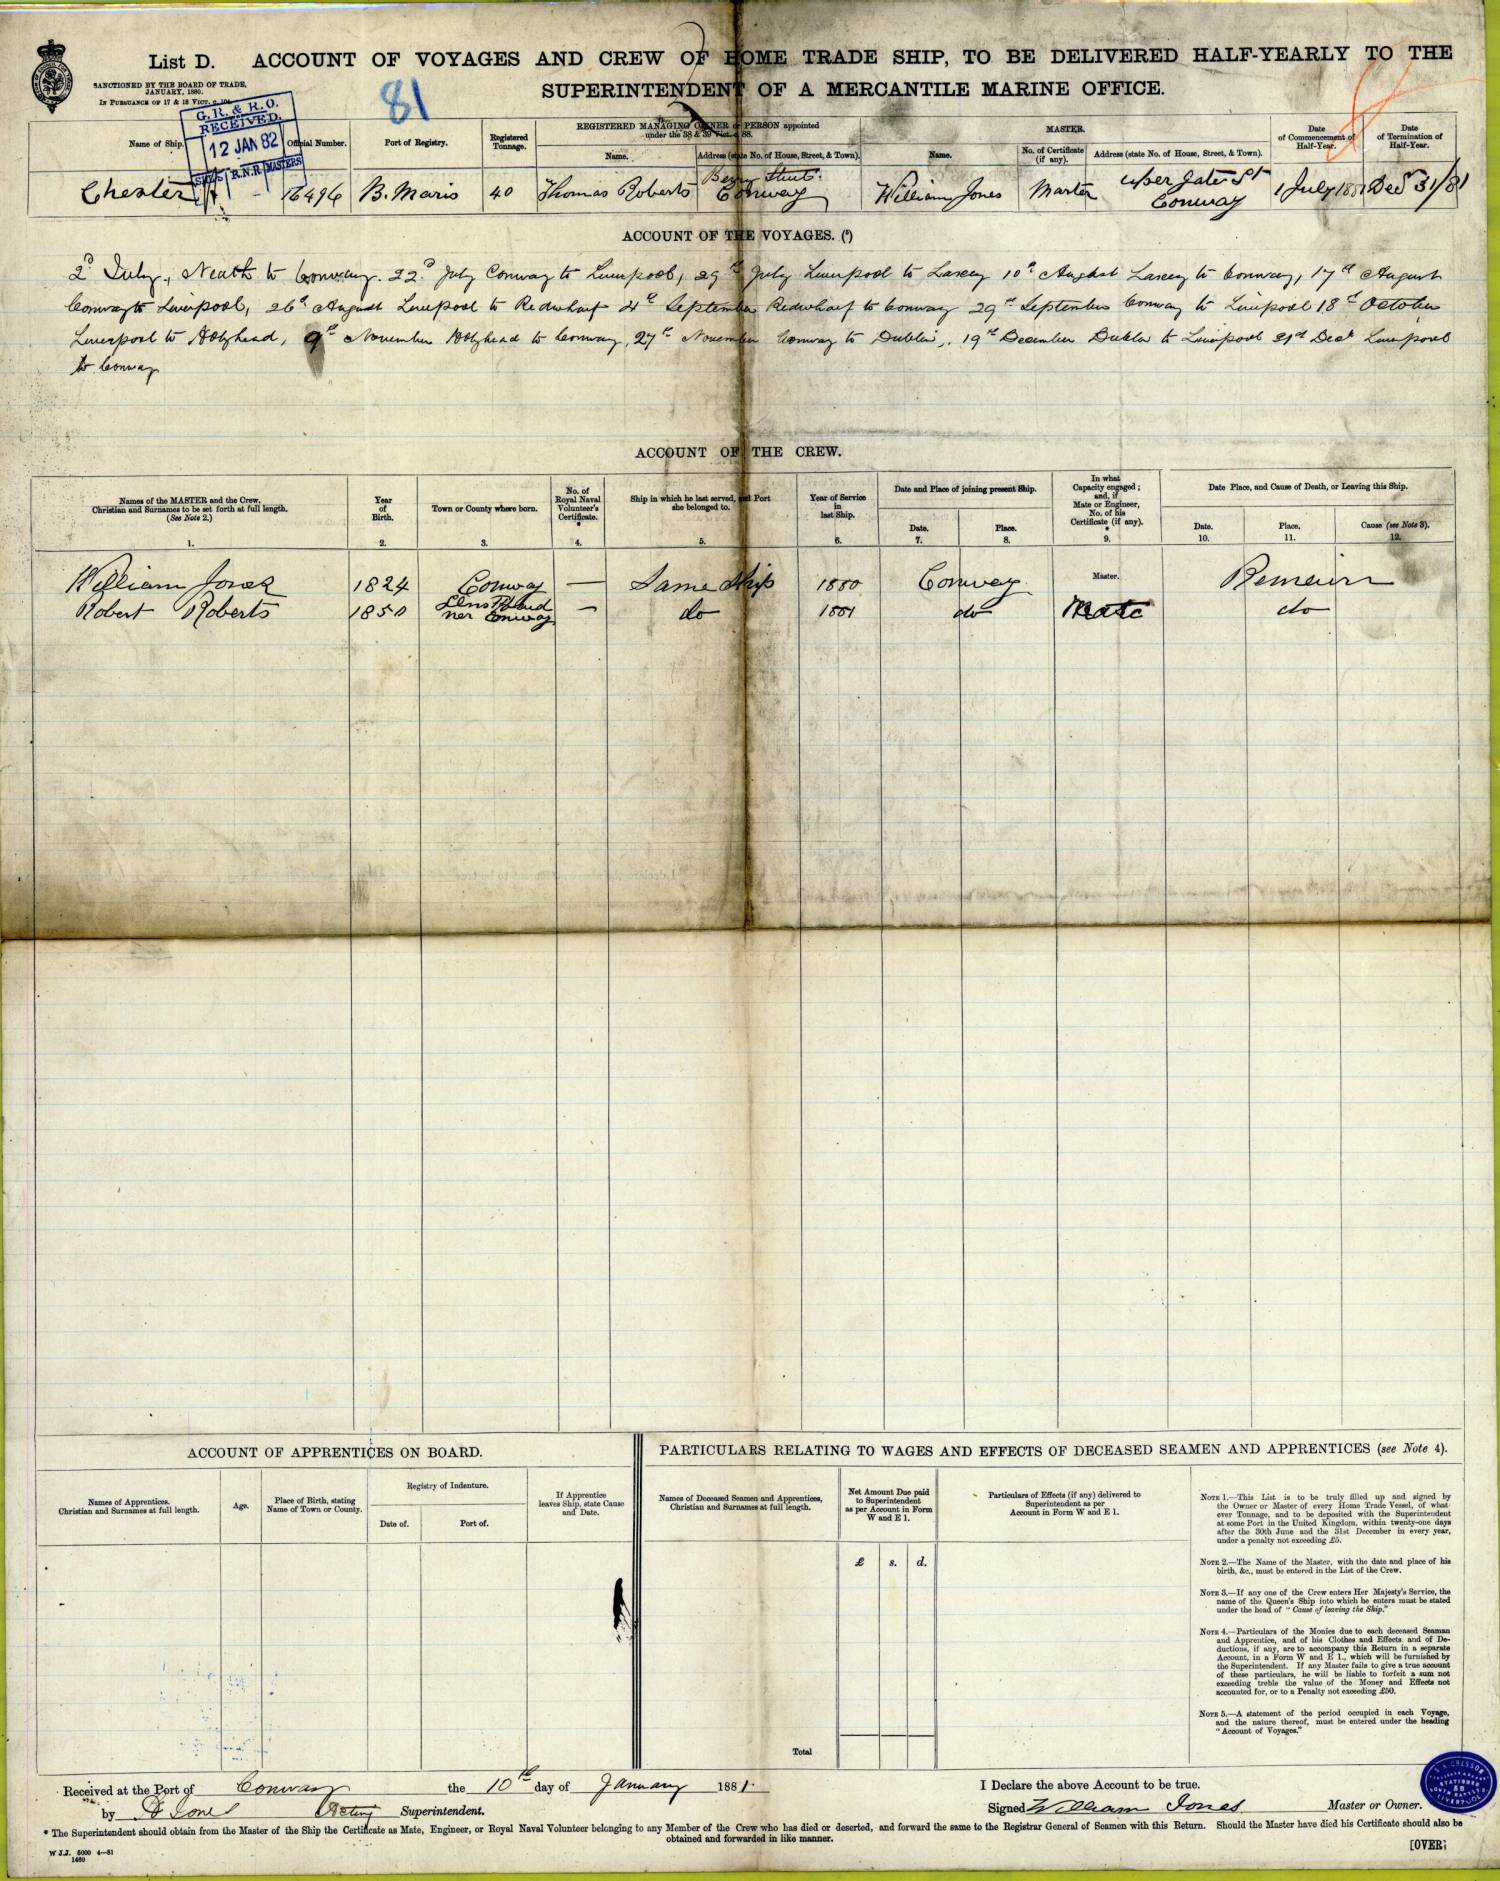 List D. ACCOUNT OF VOYAGES AND CREW OF HOME TRADE SHIP, TO BE DELIVERED HALF-YEARLY TO THE
SUPERINTENDENT OF A MERCANTILE MARINE OFFICE.
SANCTIONED BY THE BOARD OF TRADE,
JANUARY, 1880.
IN PURSUANCE OF 17 & 18 VICT. c. 104.
81
G. R. & R. O.
RECEIVED.
12 JAN 82
SHIPS R.N.R MASTERS
Name of Ship. Official Number. Port of Registry. Registered Tonnage. REGISTERED MANAGING OWNER or PERSON appointed under the 38 & 39 Vict. c. 88. MASTER. Date of Commencement of Half-Year. Date of Termination of Half-Year.
Name. Address (state No. of House, Street, & Town). Name. No. of Certificate (if any). Address (state No. of House, Street, & Town).
Chester 16496 B. Maris 40 Thomas Roberts Berry Street Conway William Jones Master uper gate St Conway 1 July 1881 Decr 31/81
ACCOUNT OF THE VOYAGES. (5)
2d July, Neath to Conway. 22d July Conway to Liverpool, 29th July Liverpool to Laxey 10th August Laxey to Conway, 17th August
Conway to Liverpool, 26th August Liverpool to Redwharf 4th September Redwharf to Conway 29th September Conway to Liverpool 18th October
Liverpool to Holyhead, 9th November Holyhead to Conway, 27th November Conway to Dublin, 19th December Dublin to Liverpool 21st Decr Liverpool
to Conway
ACCOUNT OF THE CREW.
Names of the MASTER and the Crew. Christian and Surnames to be set forth at full length. (See Note 2.) Year of Birth. Town or County where born. No. of Royal Naval Volunteer's Certificate. * Ship in which he last served, and Port she belonged to. Year of Service in last Ship. Date and Place of joining present Ship. In what Capacity engaged; and, if Mate or Engineer, No. of his Certificate (if any). * Date Place, and Cause of Death, or Leaving this Ship.
Date. Place. Date. Place. Cause (see Note 3).
1. 2. 3. 4. 5. 6. 7. 8. 9. 10. 11. 12.
William Jones 1824 Conway — Same Ship 1880 Conway Master. Remain
Robert Roberts 1850 ner Conway — do 1881 do Mate do
ACCOUNT OF APPRENTICES ON BOARD.
Names of Apprentices. Christian and Surnames at full length. Age. Place of Birth, stating Name of Town or County. Registry of Indenture. If Apprentice leaves Ship, state Cause and Date.
Date of. Port of.
PARTICULARS RELATING TO WAGES AND EFFECTS OF DECEASED SEAMEN AND APPRENTICES (see Note 4).
Names of Deceased Seamen and Apprentices, Christian and Surnames at full length. Net Amount Due paid to Superintendent as per Account in Form W and E 1. Particulars of Effects (if any) delivered to Superintendent as per Account in Form W and E 1.
£ s. d.
Total
NOTE 1.—This List is to be truly filled up and signed by
the Owner or Master of every Home Trade Vessel, of what-
ever Tonnage, and to be deposited with the Superintendent
at some Port in the United Kingdom, within twenty-one days
after the 30th June and the 31st December in every year,
under a penalty not exceeding £5.
NOTE 2.—The Name of the Master, with the date and place of his
birth, &c., must be entered in the List of the Crew.
NOTE 3.—If any one of the Crew enters Her Majesty's Service, the
name of the Queen's Ship into which he enters must be stated
under the head of "Cause of leaving the Ship."
NOTE 4.—Particulars of the Monies due to each deceased Seaman
and Apprentice, and of his Clothes and Effects, and of De-
ductions, if any, are to accompany this Return in a separate
Account, in a Form W and E 1., which will be furnished by
the Superintendent. If any Master fails to give a true account
of these particulars, he will be liable to forfeit a sum not
exceeding treble the value of the Money and Effects not
accounted for, or to a Penalty not exceeding £50.
NOTE 5.—A statement of the period occupied in each Voyage,
and the nature thereof, must be entered under the heading
"Account of Voyages."
Received at the Port of Conway the 10th day of January 1881.
by Jones Acting Superintendent.
I Declare the above Account to be true.
Signed William Jones Master or Owner.
* The Superintendent should obtain from the Master of the Ship the Certificate as Mate, Engineer, or Royal Naval Volunteer belonging to any Member of the Crew who has died or deserted, and forward the same to the Registrar General of Seamen with this Return. Should the Master have died his Certificate should also be
obtained and forwarded in like manner.
W J.J. 5000 4—81
1460
[OVER]